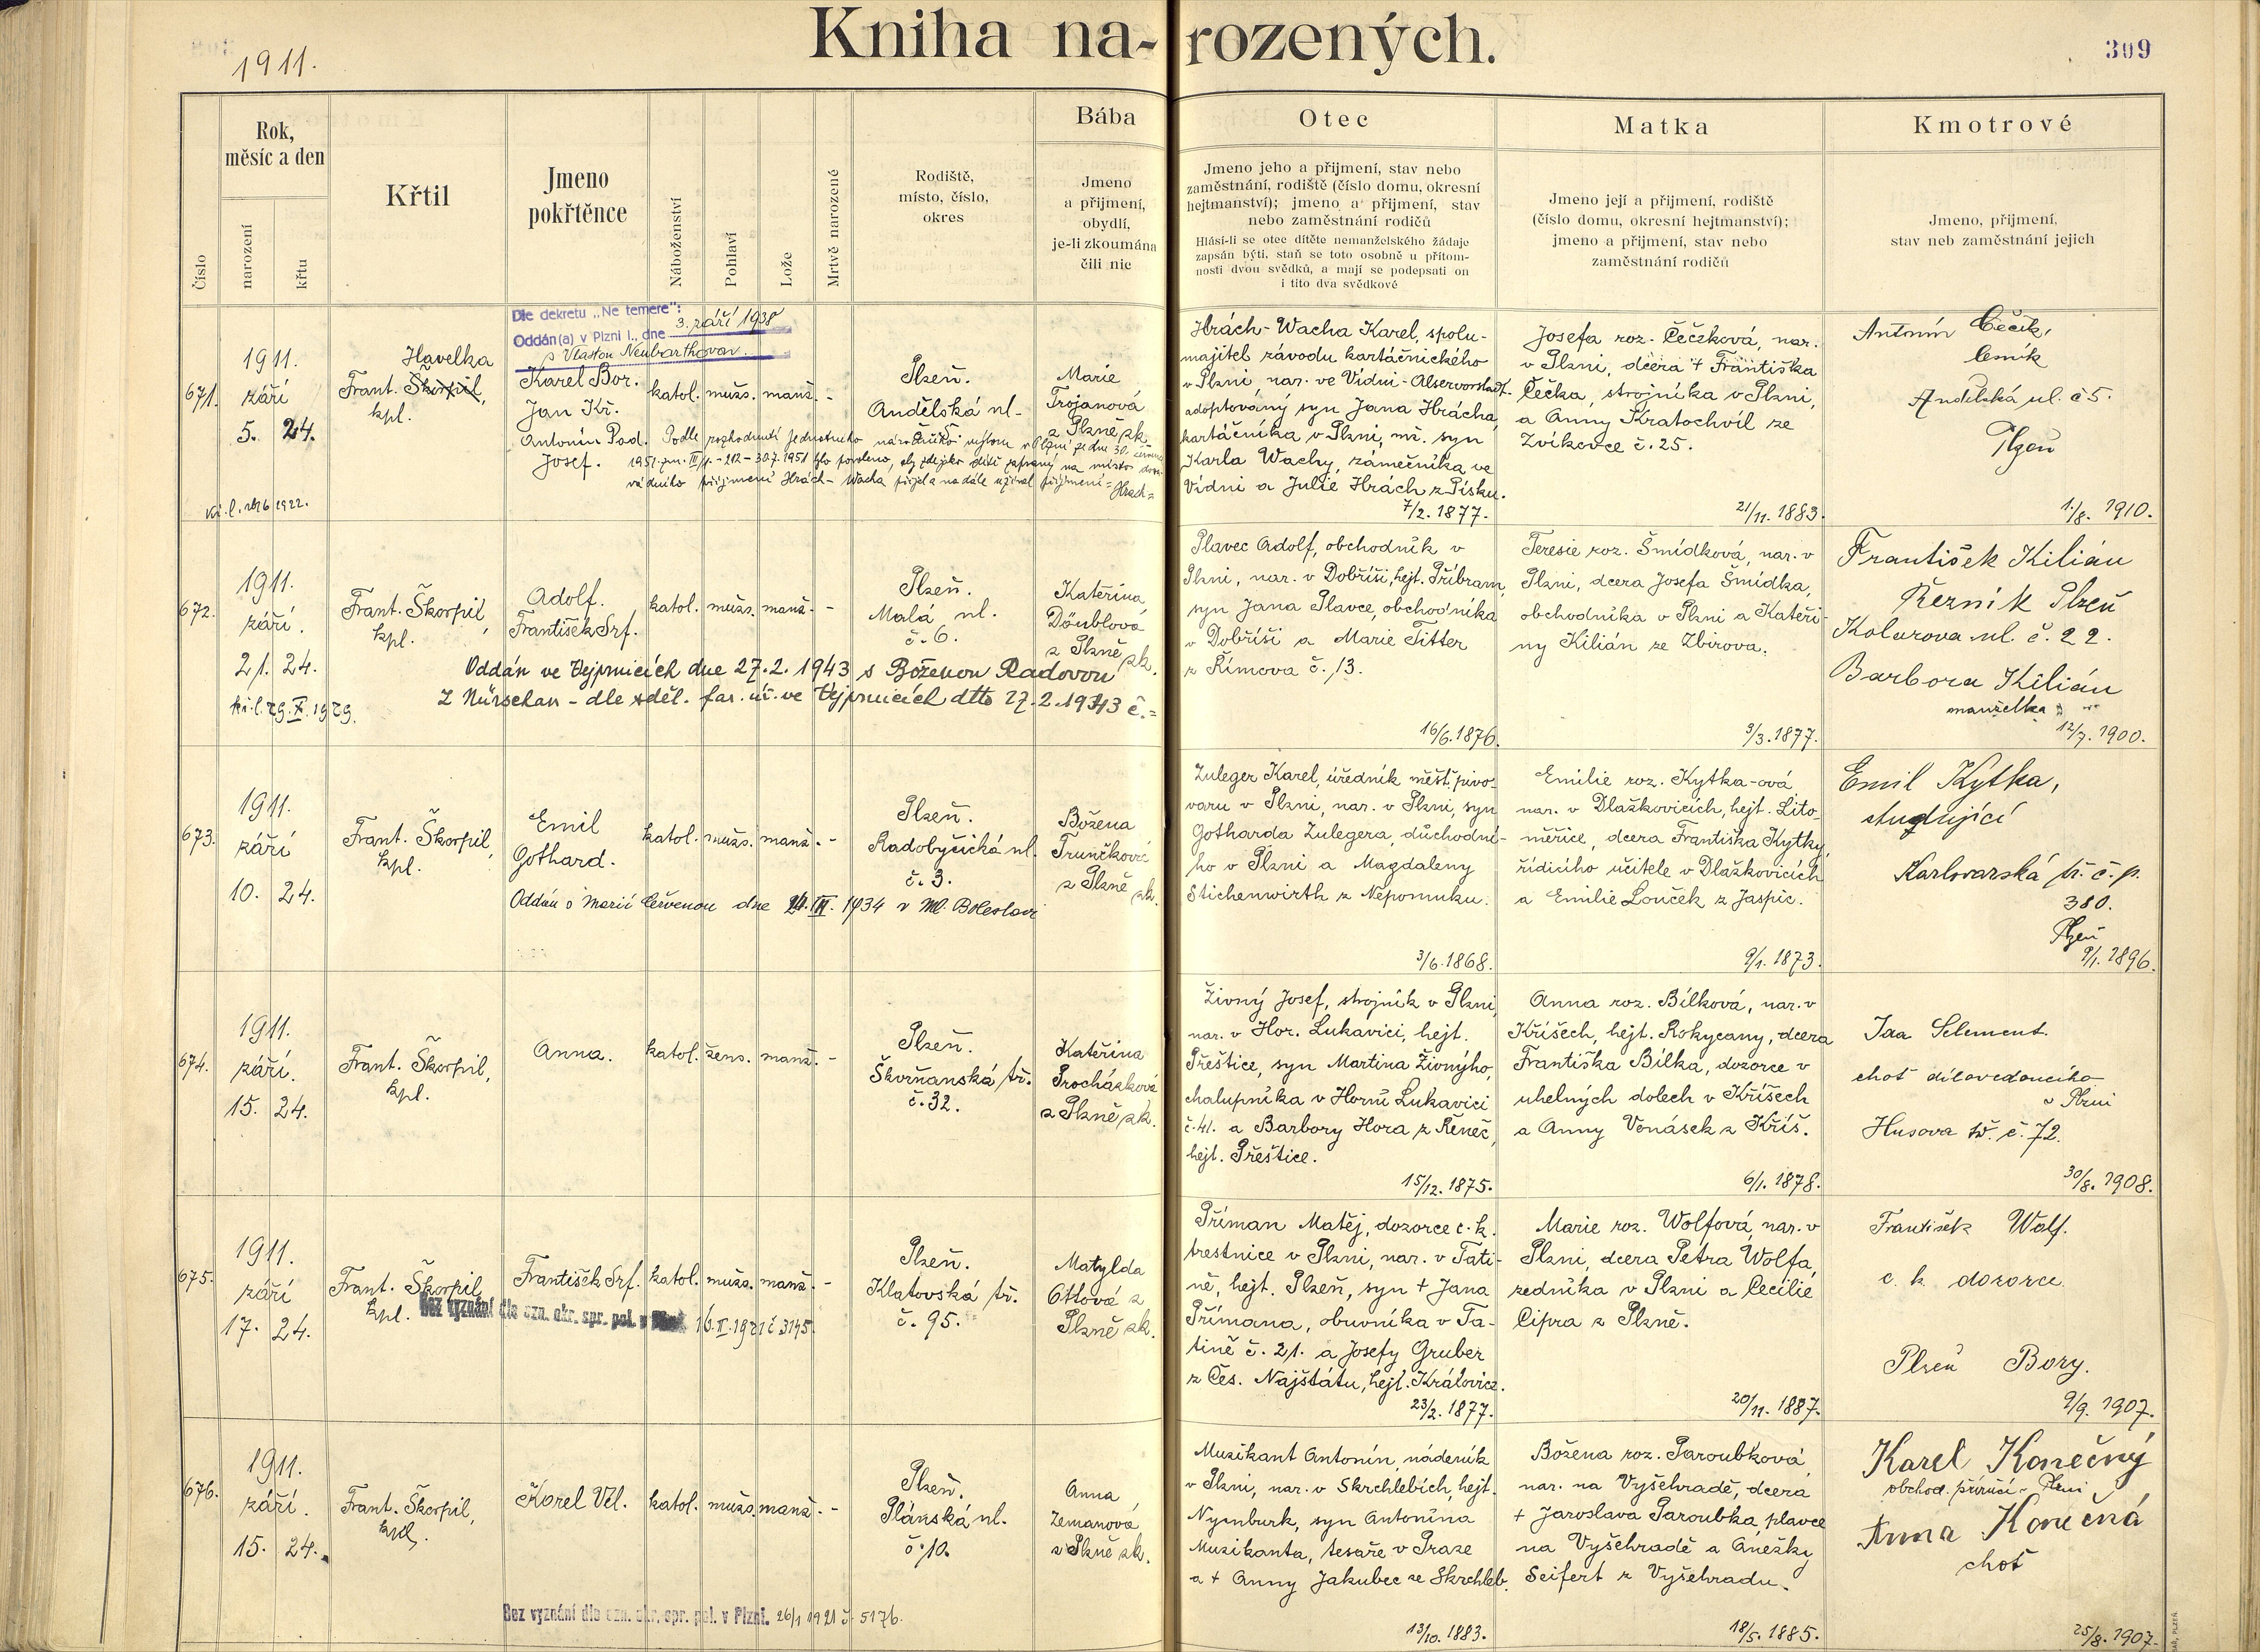 1911.
Kniha na-rozených.
309
Číslo
Rok,
měsíc a den
narození
křtu
Křtil
Jmeno
pokřtěnce
Náboženství
Pohlaví
Lože
Mrtvě narozené
Rodiště,
místo, číslo,
okres
Bába
Jmeno
a přijmení,
obydlí,
je-li zkoumána
čili nic
Otec
Jmeno jeho a přijmení, stav nebo
zaměstnání, rodiště (číslo domu, okresní
hejtmanství); jmeno a přijmení, stav
nebo zaměstnání rodičů
Hlásí-li se otec dítěte nemanželského žádaje
zapsán býti, staň se toto osobně u přítom-
nosti dvou svědků, a mají se podepsati on
i tito dva svědkové
Matka
Jmeno její a přijmení, rodiště
(číslo domu, okresní hejtmanství);
jmeno a přijmení, stav nebo
zaměstnání rodičů
Kmotrové
Jmeno, přijmení,
stav neb zaměstnání jejich
671.
1911.
září
5. 24.
Havelka
Frant. Škorpil,
kpl.
Dle dekretu „Ne temere":
Oddán(a) v Plzni I., dne 3. září 1938
s Vlastou Neubarthovou.
Karel Bor.
Jan Kř.
Antonín Pad.
Josef.
katol. mužs. manž. -
Plzeň.
Andělská ul.
č. 5
Marie
Trojanová
z Plzně zk.
Podle rozhodnutí jednotného národního výboru v Plzni ze dne 30. června
1951 zn. III/1 - 212 - 30.7.1951 bylo povoleno, aby zdejšího dítě zapsaný na místo dosa-
vadního příjmení Hrách - Wacha přijal a nadále užíval příjmení = Hrach =
Hrách-Wacha Karel, spolu-
majitel závodu kartáčnického
v Plzni, nar. ve Vídni - Alservorstadt.
adoptovaný syn Jana Hrácha,
kartáčníka v Plzni, vl. syn
Karla Wachy, zámečníka ve
Vídni a Julie Hrách z Písku.
7/2. 1877.
Josefa roz. Čečková, nar.
v Plzni, dcera + Františka
Čečka, strojníka v Plzni,
a Anny Kratochvíl ze
Zvíkovce č. 25.
21/11. 1883.
Antonín Čečík,
číšník
Andělská ul. č 5.
Plzeň
1./8. 1910.
672.
1911.
září.
21. 24.
Frant. Škorpil,
kpl.
Adolf.
František Srf.
katol. mužs. manž. -
Plzeň.
Malá ul.
č. 6.
Kateřina
Döublová
z Plzně zk.
Oddán ve Vejprnicích dne 27. 2. 1943 s Boženou Radovou
Z Nürschan - dle sděl. far. úř. ve Vejprnicích dtto 27. 2. 1943 č. =
kř. l. 29. X. 1929.
Plavec Adolf, obchodník v
Plzni, nar. v Dobříši, hejt. Příbram,
syn Jana Plavce, obchodníka
v Dobříši a Marie Titter
z Římova č. 13.
16/6. 1876.
Teresie roz. Šmídková, nar. v
Plzni, dcera Josefa Šmídka,
obchodníka v Plzni a Kateři-
ny Kilián ze Zbirova.
3/3. 1877.
František Kilián
Řezník Plzeň
Kolarova ul. č. 22.
Barbora Kilián
manželka
12/7. 1900.
673.
1911.
září
10. 24.
Frant. Škorpil,
kpl.
Emil
Gothard.
katol. mužs. manž. -
Plzeň.
Radobyčická ul.
č. 3.
Božena
Trunčková
z Plzně zk.
Oddán s Marií Červenou dne 24. III. 1934 v Ml. Boleslavi
Zuleger Karel, úředník měšť. pivo-
varu v Plzni, nar. v Plzni, syn
Gotharda Zulegera, důchodní-
ho v Plzni a Magdaleny
Stichenwirth z Nepomuku.
3/6. 1868.
Emilie roz. Kytka-ová
nar. v Dlažkovicích, hejt. Lito-
měřice, dcera Františka Kytky,
řídícího učitele v Dlažkovicích
a Emilie Louček z Jaspic.
9/1. 1873.
Emil Kytka,
studující
Karlovarská tř. č. p.
380.
Plzeň
9/1. 1896.
674.
1911.
září.
15. 24.
Frant. Škorpil,
kpl.
Anna.
katol. žens. manž. -
Plzeň.
Škvrňanská tř.
č. 32.
Kateřina
Procházková
z Plzně zk.
Živný Josef, strojník v Plzni,
nar. v Hor. Lukavici, hejt.
Přeštice, syn Martina Živnýho,
chalupníka v Horní Lukavici
č. 41. a Barbory Hora z Řeneč,
hejt. Přeštice.
15/12. 1875.
Anna roz. Bílková, nar. v
Křišech, hejt. Rokycany, dcera
Františka Bílka, dozorce v
uhelných dolech v Křišech
a Anny Vonásek z Kříš.
6/1. 1878.
Ida Selement.
choť dílovedoucího
v Plzni
Husova tř. č. 72.
30/8. 1908.
675.
1911.
září
17. 24.
Frant. Škorpil
kpl.
František Srf.
katol. mužs. manž. -
Bez vyznání dle ozn. okr. spr. pol. v Plzni 16. II. 1921 č 3145
Plzeň.
Klatovská tř.
č. 95.
Matylda
Ottová z
Plzně zk.
Příman Matěj, dozorce c. k.
trestnice v Plzni, nar. v Tati-
ně, hejt. Plzeň, syn + Jana
Přímana, obuvníka v Ta-
tině č. 21. a Josefy Gruber
z Čes. Najštátu, hejt. Kralovice.
23/2. 1877.
Marie roz. Wolfová, nar. v
Plzni, dcera Petra Wolfa,
zedníka v Plzni a Cecilie
Cipra z Plzně.
20/11. 1887.
František Wolf.
c. k. dozorce
Plzeň Bory.
9/9. 1907.
676.
1911.
září.
15. 24.
Frant. Škorpil,
kpl.
Karel Vil.
katol. mužs. manž. -
Plzeň.
Plánská ul.
č. 10.
Anna
Zemanová
z Plzně zk.
Bez vyznání dle ozn. okr. spr. pol. v Plzni. 26/1 1921 č. 5176.
Muzikant Antonín, nádeník
v Plzni, nar. v Skrchlebích, hejt.
Nymburk, syn Antonína
Muzikanta, tesaře v Praze
a + Anny Jakubec ze Skrchleb.
13/10. 1883.
Božena roz. Paroubková
nar. na Vyšehradě, dcera
+ Jaroslava Paroubka, plavce
na Vyšehradě a Anežky
Seifert z Vyšehradu.
18/5. 1885.
Karel Konečný
obchod. příručí - Plzni
Anna Konečná
choť
25/8. 1907.